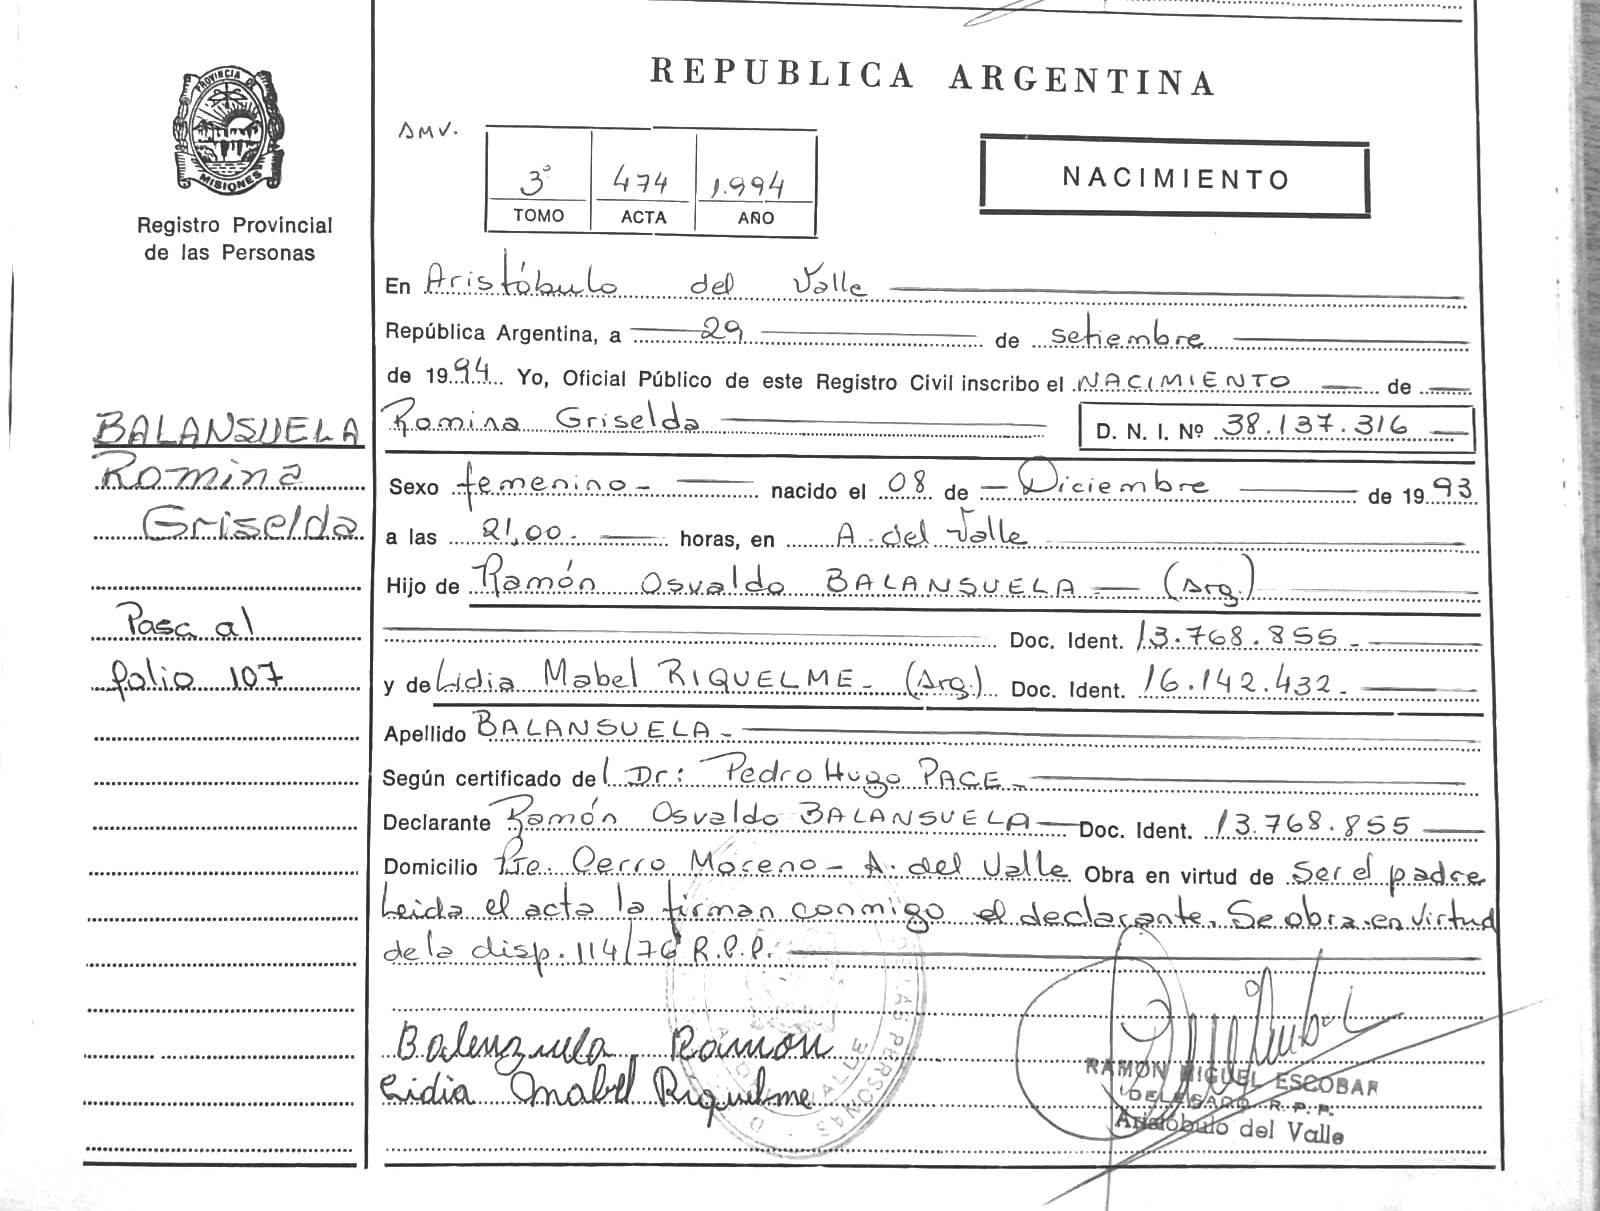 REPUBLICA ARGENTINA
PROVINCIA DE
MISIONES
Registro Provincial
de las Personas
SMV.
3º 474 1.994
TOMO ACTA AÑO
NACIMIENTO
En Aristóbulo del Valle
República Argentina, a 29 de setiembre
de 1994. Yo, Oficial Público de este Registro Civil inscribo el NACIMIENTO de
BALANSUELA
Romina
Griselda
Pasa al
folio 107
Romina Griselda D. N. I. Nº 38.137.316
Sexo femenino - nacido el 08 de Diciembre de 1993
a las 21,00 - horas, en A. del Valle
Hijo de Ramón Osvaldo BALANSUELA (Arg.)
Doc. Ident. 13.768.855 -
y de Lidia Mabel RIQUELME - (Arg.) Doc. Ident. 16.142.432 -
Apellido BALANSUELA -
Según certificado del Dr: Pedro Hugo PACE -
Declarante Ramón Osvaldo BALANSUELA Doc. Ident. 13.768.855
Domicilio Pje. Cerro Moreno - A. del Valle Obra en virtud de ser el padre
Leida el acta la firman conmigo el declarante. Se obra en virtud
de la disp. 114/76 R.P.P.
Balenzuela Ramon
Lidia Mabel Riquelme
DE LAS PERSONAS
VALLE
RAMON MIGUEL ESCOBAR
DELEGADO R. P. P.
Aristóbulo del Valle